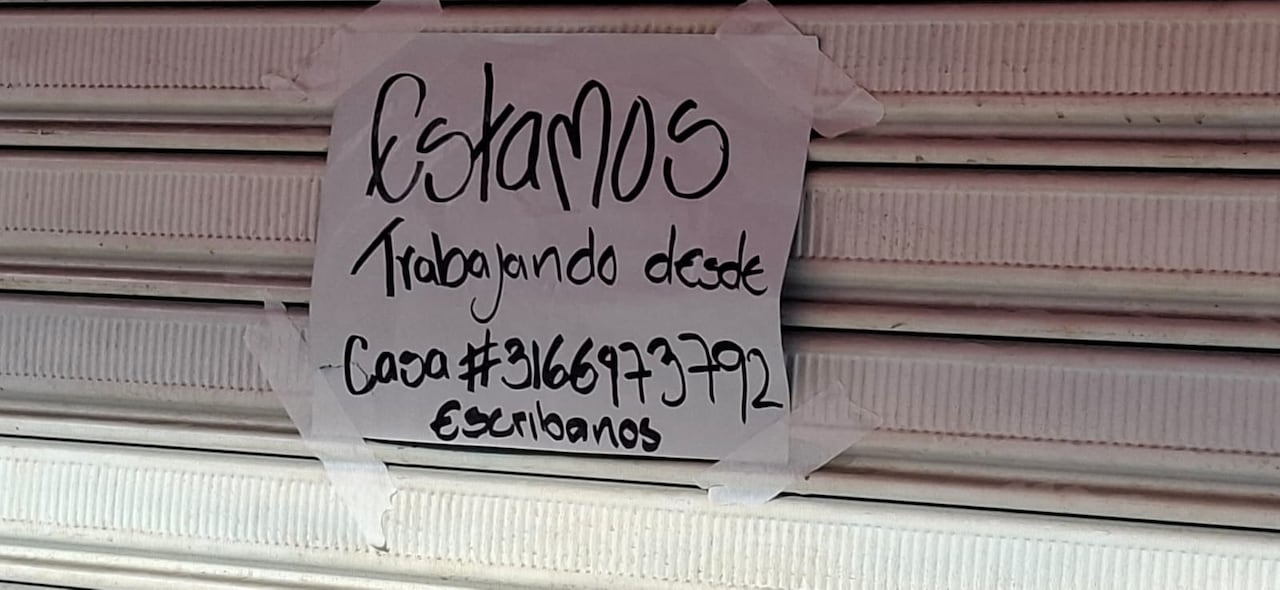 Estamos
Trabajando desde
Casa #3166973792
Escribanos